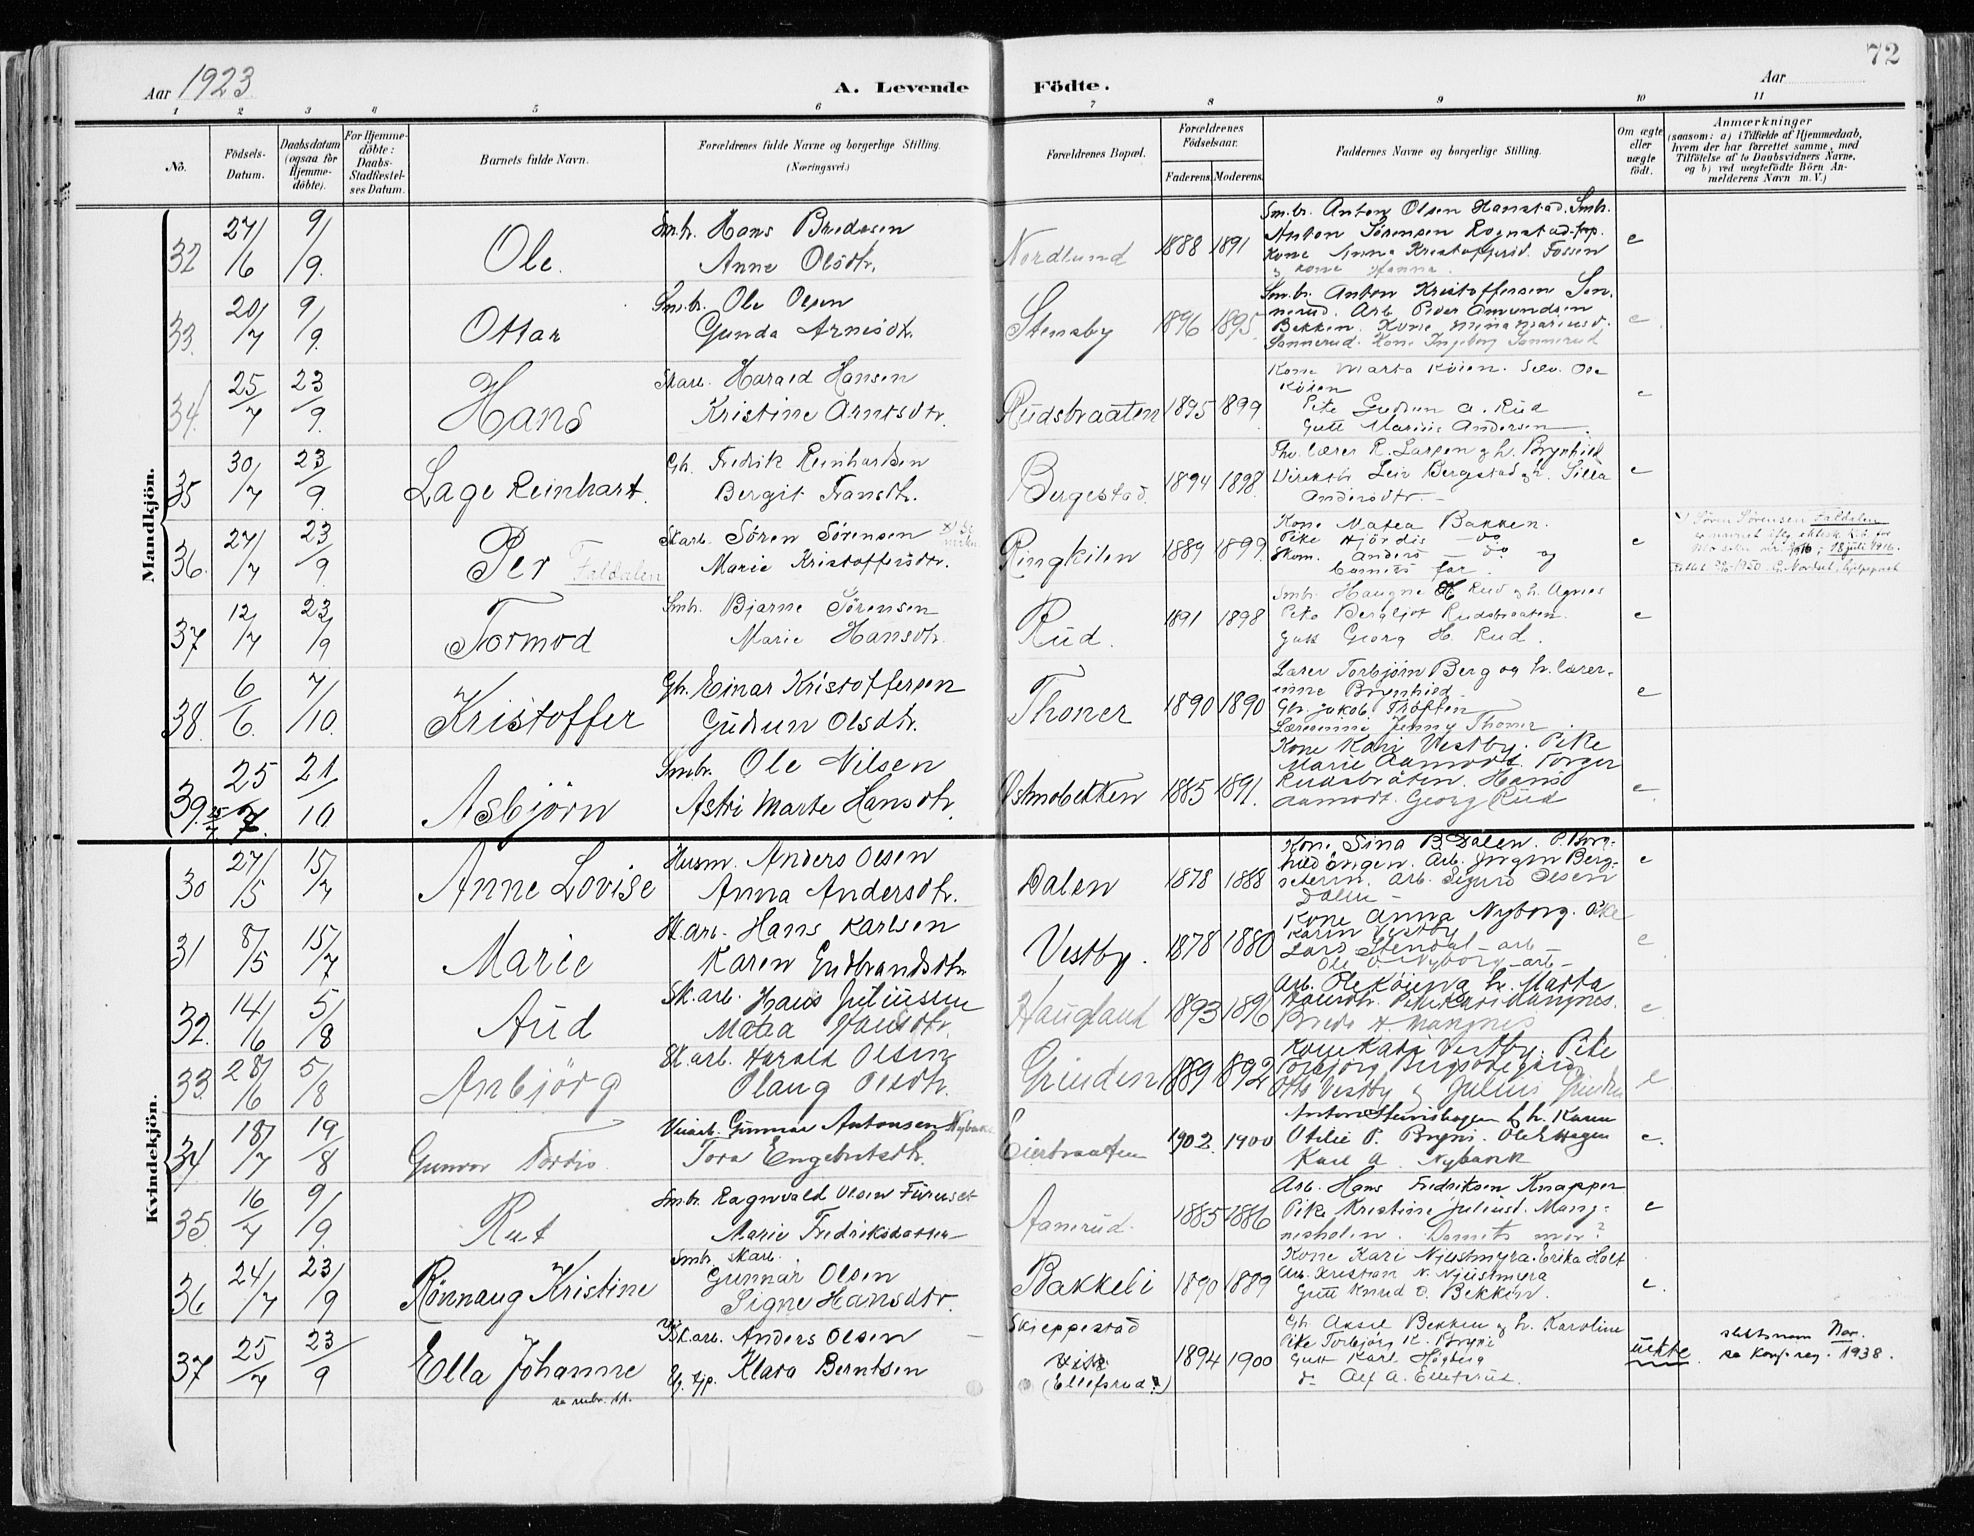 72
Aar 1923
A. Levende
Födte.
Aar
1 2 3 4 5 6 7 8 9 10 11
No.
Födsels-
Datum.
Daabsdatum
(ogsaa for
Hjemme-
döbte).
For Hjemme-
döbte:
Daabs-
Stadfæstel-
ses Datum.
Barnets fulde Navn.
Forældrenes fulde Navne og borgerlige Stilling.
(Næringsvei.)
Forældrenes Bopæl.
Forældrenes
Födselsaar.
Faderens. Moderens.
Faddernes Navne og borgerlige Stilling.
Om ægte
eller
uægte
födt.
Anmærkninger
(saasom: a) i Tilfælde af Hjemmedaab,
hvem der har forrettet samme, med
Tilföielse af to Daabsvidners Navne,
og b) ved uægtefödte Börn An-
melderens Navn m. V.)
Mandkjön.
32 27/6 9/9 Ole. Sm.br. Hans Bredesen
Anne Olsdtr. Nordlund 1888 1891 e
Sm.br. Anton Olsen Hanstad. Smbr.
Anton Sörensen Rognstad
Kone Anna Kristoffersd. Fossen
kone Hanna.
33. 20/7 9/9. Ottar Sm.br. Ole Olsen
Gunda Arnesdtr. Stensby 1896 1895. e.
Sm.br. Anton Kristoffersen Son-
nerud. Arb. Peder Amundsen
Bakken. Kone Mina Mariusd.
Sonnerud. Kone Ingeborg Sonnerud
34. 25/7 23/9. Hans Skarb. Harald Hansen
Kristine Arntsdtr. Rudsbraaten 1895 1899 e
Kone Marta Köien. Selv. Ole
Köien
Pike Gudrun A. Rud
Gutt Marius Andersen
35 30/7 23/9. Lage Reinhart. Gb. Fredrik Reinhardsen
Bergit Fransdtr. Bergestad. 1894 1898 e
lærer R. Larsen h. Brynhild
Leiv Bergstad h. Silla
Andersdtr
36. 27/7 23/9 Per Faldalen Skarb. Sören Sörensen
Marie Kristoffersdtr. Ringkilen 1889 1899. e
Kone Matea Bakken.
Pike Hjördis do
Skom. Anders do og
barnets far.
Sören Sörensen Faldalen
18 juli 1916.
37 12/7 23/9 Tormod Smbr. Bjarne Sörensen
Marie Hansdtr. Rud. 1891 1898 e
Smbr. Haugne H Rud og h. Agnes
Pike Bergljot Rudsbraaten.
Gutt Georg H. Rud.
38. 6/6. 7/10. Kristoffer Gb. Einar Kristoffersen
Gudrun Olsdtr. Thoner 1890 1890 e
Lærer Torbjörn Berg og h. lærer-
inne Brynhild
Gb. Jakob Tröften
Lærerinne Jenny Thoner.
39. 25/7. 21/10 Asbjörn Smbr. Ole Nilsen
Astri Marte Hansdtr. Ostmobekken 1885 1891. e.
Kone Kari Vestby. Pike
Marie Aamodt. Torger
Rudsbråten. Hans
Aamodt. Georg Rud
Kvindekjön.
30 27/5 15/7 Anne Lovise Husm. Anders Olsen
Anna Andersdtr. Dalen 1878 1888 e
Kone Sina B. Dalen. P. Borg-
hild Arb. Jörgen Berg-
seterm. Arb. Sigurd Olsen
Dalen
31 8/5 15/7 Marie Skarb. Hans Karlsen
Karen Gudbrandsdtr. Vestby. 1878 1880 e
Kone Anna Nyborg. Pike
Karin Vestby
Lars Stendal arb
Ole O. Nyborg arb
32. 14/6 5/8 Aud Sk.arb. Hans Juliussen
Haugland 1893 1896 e.
Arb. Ole Köien h. Marta
Bredo H. Mangnes
33. 28/6 5/8 Anbjörg Sk.arb. Harald Olsen
Olaug Olsdtr. Grinden 1889 1892 e
Kone Kari Vestby. Pike
Otto Vestby Julius Grinden
34 18/7 19/8 Gunvor Tordis. Veiarb. Gunnar Antonsen Nybakk
Tora Engebretsdtr. Eierbraaten 1902. 1900 e.
Anton h. Karen
Otilie P. Bryni. Ole E Hagen
Karl A. Nybank
35. 16/7 9/9. Rut Smbr. Ragnvald Olsen Furuset
Marie Fredriksdatter Aamrud. 1885 1886 e
Arb. Hans Fredriksen Knapper
Pike Kristine Juliusd. Mang-
nesholen. mor?
36 24/7 23/9 Rönnaug Kristine Smbr. Skarb.
Gunnar Olsen
Signe Hansdtr. Bakkeli 1890 1889 e.
Kone Kari Njustmyra. Erika Holt
Arb. Kristian N. Njustmyra
Gutt Knud O. Bekken.
37 25/7 23/9 Ella Johanne Sk.arb. Anders Olsen
Klara Berntsen Skjeppestad
(Ellefsrud?) 1894 1900 uekte
Gb. Aksel Bekken og h. Karoline
Pike Torbjörg K. Bryni
Gutt Karl Högberg
do Alf A. Ellefsrud.
slektsnavn Nor.
se Konf.reg. 1938.